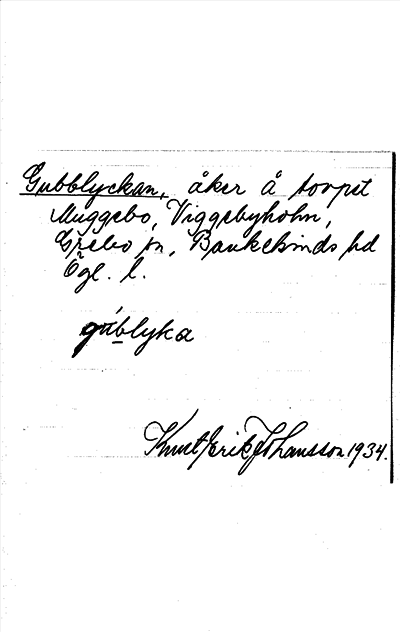 Gubblyckan, åker å torpet
Muggebo, Viggebyholm,
Grebo sn, Bankekinds hd
Ögl. l.
gúblyka
Knut Erik Johansson 1934.